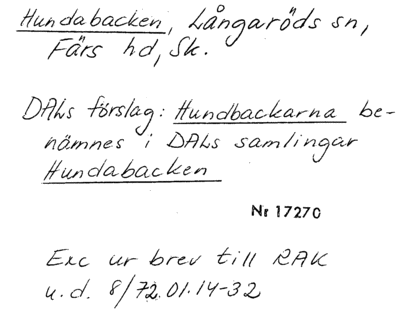 Hundabacken, Långaröds sn,
Färs hd, Sk.
DALs förslag: Hundbackarna be-
nämnes i DALs samlingar
Hundabacken
Nr 17270
Exc ur brev till RAK
u.d. 8/72.01.14-32